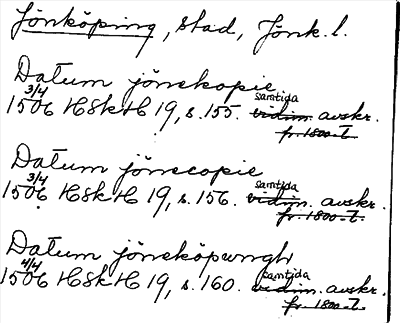 Jönköping, stad, Jönk. l.
Datum jönekopie
3/4 samtida
1506 HSkH 19, s. 155. vidim. avskr.
fr. 1800-t.
Datum jönecopie
3/4 samtida
1506 HSkH 19, s. 156. vidim. avskr.
fr. 1800-t.
Datum jönsköpungh
4/4 samtida
1506 HSkH 19, s. 160. vidim. avskr.
fr. 1800-t.